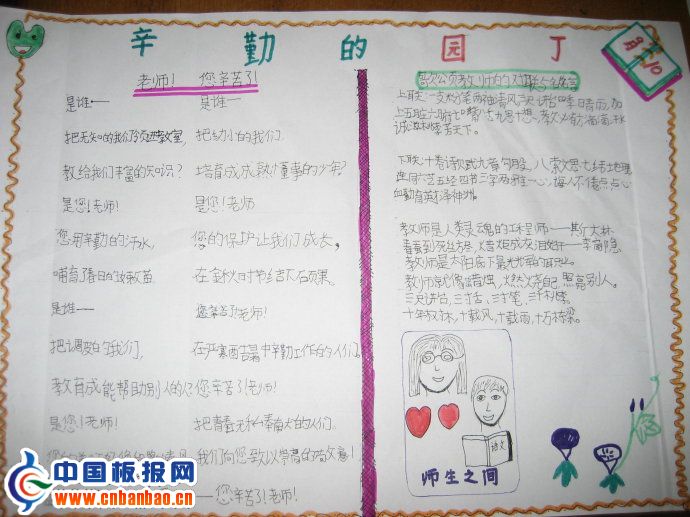 辛勤的园丁
9月10
老师! 您辛苦了!
是谁——
把无知的我们领进教室,
教给我们丰富的知识?
是您!老师!
您用辛勤的汗水,
哺育了春日的
是谁——
把调皮的我们,
教育成能帮助别人的人?
是您!老师!
是谁——
把幼小的我们.
培育成成熟懂事的少年?
是您!老师
您的保护让我们成长,
在金秋时节结下硕果.
您辛苦了!老师!
在严寒酷暑中辛勤工作的人们.
您辛苦了!老师!
把青春无私奉献的人们.
我们向您致以崇高的敬意!
——您辛苦了!老师!
歌颂教师的对联与名言
上联:一支粉笔两袖清风三尺讲台四季晴雨,加
上五脏六腑七嘴八舌九思十想,教必有方
诚滋桃李芬天下.
下联:十卷诗赋九章勾股,八索文思七纬地理
连同六艺五经四书三字两雅一心,诲人不倦点点心
血勤育英才泽神州.
教师是人类灵魂的工程师——斯大林
春蚕到死丝方尽,蜡炬成灰泪始干——李商隐
教师是太阳底下最光荣的职业.
教师就像蜡烛,燃烧自己,照亮别人。
三尺讲台,三寸舌,三寸笔,三千桃李.
十年树木,十载风,十载雨,十万栋梁。
语文
师生之间
中国板报网
www.cnbanbao.cn